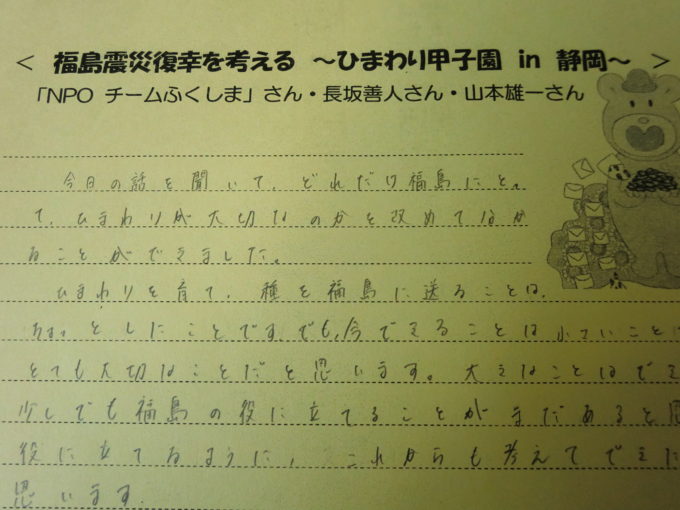 < 福島震災復幸を考える ～ひまわり甲子園 in 静岡～ >
「NPO チームふくしま」さん・長坂善人さん・山本雄一さん
今日の話を聞いて、どれだけ福島にとっ
て、ひまわりが大切なのかを改めてなが
ることができました。
ひまわりを育て、種を福島に送ることは、
ちょっとしたことです。でも、今できることは小さいことに
とても大切なことだと思います。大きなことはでき
少しでも福島の役に立てることがまだあると思
役に立てるように、これからも考えてできた
思います。